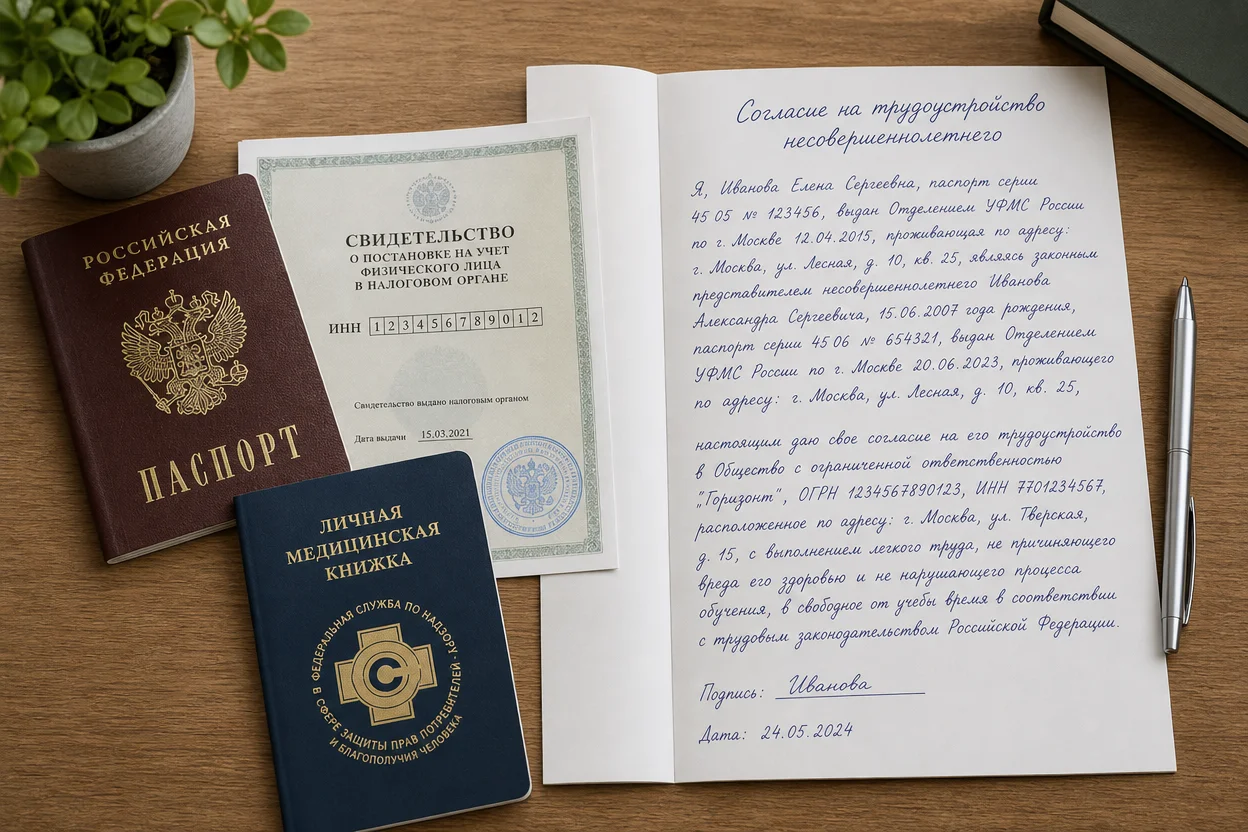 РОССИЙСКАЯ
ФЕДЕРАЦИЯ
ПАСПОРТ
СВИДЕТЕЛЬСТВО
О ПОСТАНОВКЕ НА УЧЕТ
ФИЗИЧЕСКОГО ЛИЦА
В НАЛОГОВОМ ОРГАНЕ
ИНН 123456789012
Свидетельство выдано налоговым органом
Дата выдачи 15.03.2021
ЛИЧНАЯ
МЕДИЦИНСКАЯ
КНИЖКА
ФЕДЕРАЛЬНАЯ СЛУЖБА ПО НАДЗОРУ - В СФЕРЕ ЗАЩИТЫ ПРАВ ПОТРЕБИТЕЛЕЙ
И БЛАГОПОЛУЧИЯ ЧЕЛОВЕКА
С
Согласие на трудоустройство
несовершеннолетнего
Я, Иванова Елена Сергеевна, паспорт серии
45 05 № 123456, выдан Отделением УФМС России
по г. Москве 12.04.2015, проживающая по адресу:
г. Москва, ул. Лесная, д. 10, кв. 25, являясь законным
представителем несовершеннолетнего Иванова
Александра Сергеевича, 15.06.2007 года рождения,
паспорт серии 45 06 № 654321, выдан Отделением
УФМС России по г. Москве 20.06.2023, проживающего
по адресу: г. Москва, ул. Лесная, д. 10, кв. 25,
настоящим даю свое согласие на его трудоустройство
в Общество с ограниченной ответственностью
"Горизонт", ОГРН 1234567890123, ИНН 7701234567,
расположенное по адресу: г. Москва, ул. Тверская,
д. 15, с выполнением легкого труда, не причиняющего
вреда его здоровью и не нарушающего процесса
обучения, в свободное от учебы время в соответствии
с трудовым законодательством Российской Федерации.
Подпись: Иванова
Дата: 24.05.2024